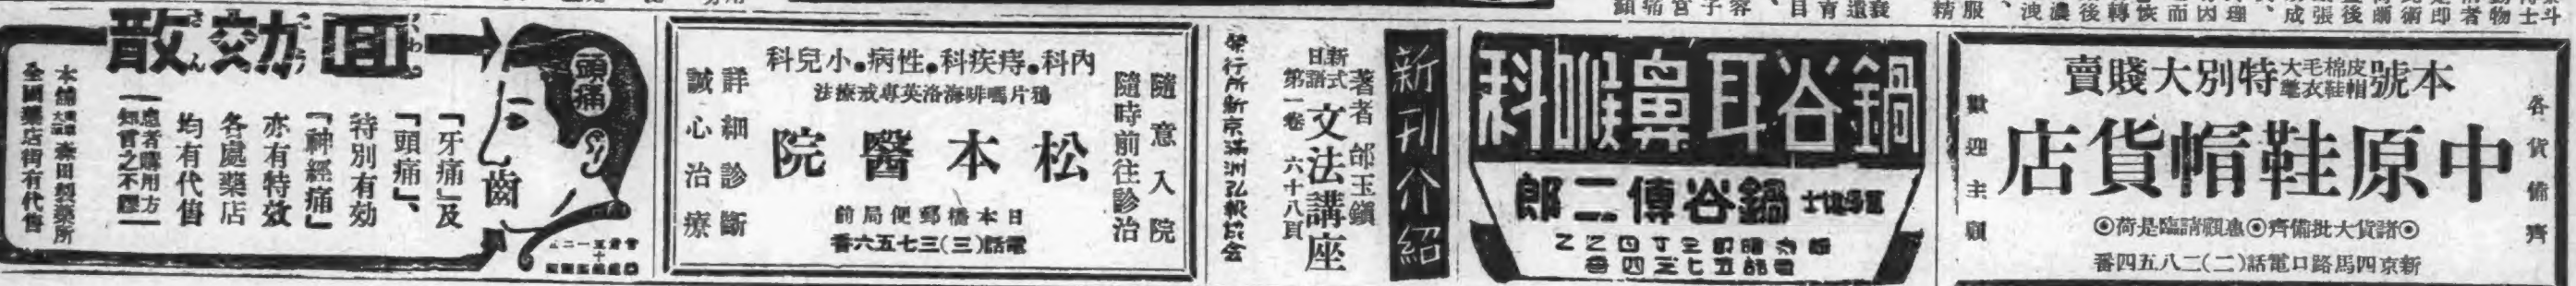 各貨備齊
本號皮帽棉鞋毛衣大氅特別大賤賣
中原鞋帽貨店
◎諸貨大批備齊◎惠顧請臨是荷◎
新京四馬路口電話(二)二八五四番
歡迎主顧
鍋谷耳鼻喉科
鍋谷傳二郎
新刊介紹
著者 邰玉鎮
新式日語 文法講座
第一卷 六十八頁
發行所新京滿洲弘報協会
隨意入院
隨時前往診治
內科.痔疾科.性病.小兒科
鴉片嗎啡海洛英專戒療法
松本醫院
日本橋郵便局前
電話(三)三七五六番
詳細診斷
誠心治療
頭痛
齒
回効散
くわいかうさん
「牙痛」及
「頭痛」、
特別有効
「神經痛」
亦有特效
各處藥店
均有代售
患者購用方
知言之不謬
本舖 森田製藥所
全國藥店街有代售